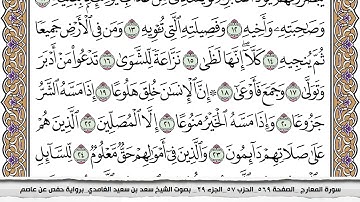 وَصَٰحِبَتِهِۦ وَأَخِيهِ ١٢ وَفَصِيلَتِهِ ٱلَّتِي تُـٔۡوِيهِ ١٣ وَمَن فِي ٱلۡأَرۡضِ جَمِيعٗا
ثُمَّ يُنجِيهِ ١٤ كَلَّآۖ إِنَّهَا لَظَىٰ ١٥ نَزَّاعَةٗ لِّلشَّوَىٰ ١٦ تَدۡعُواْ مَنۡ أَدۡبَرَ
وَتَوَلَّىٰ ١٧ وَجَمَعَ فَأَوۡعَىٰٓ ١٨ ۞ إِنَّ ٱلۡإِنسَٰنَ خُلِقَ هَلُوعًا ١٩ إِذَا مَسَّهُ ٱلشَّرُّ
جَزُوعٗا ٢٠ وَإِذَا مَسَّهُ ٱلۡخَيۡرُ مَنُوعًا ٢١ إِلَّا ٱلۡمُصَلِّينَ ٢٢ ٱلَّذِينَ هُمۡ
عَلَىٰ صَلَاتِهِمۡ دَآئِمُونَ ٢٣ وَٱلَّذِينَ فِيٓ أَمۡوَٰلِهِمۡ حَقّٞ مَّعۡلُومٞ ٢٤ لِّلسَّآئِلِ
سورة المعارج _الصفحة ٥٦٩_ الحزب ٥٧_الجزء ٢٩_ بصوت الشيخ سعد بن سعيد الغامدي_برواية حفص عن عاصم